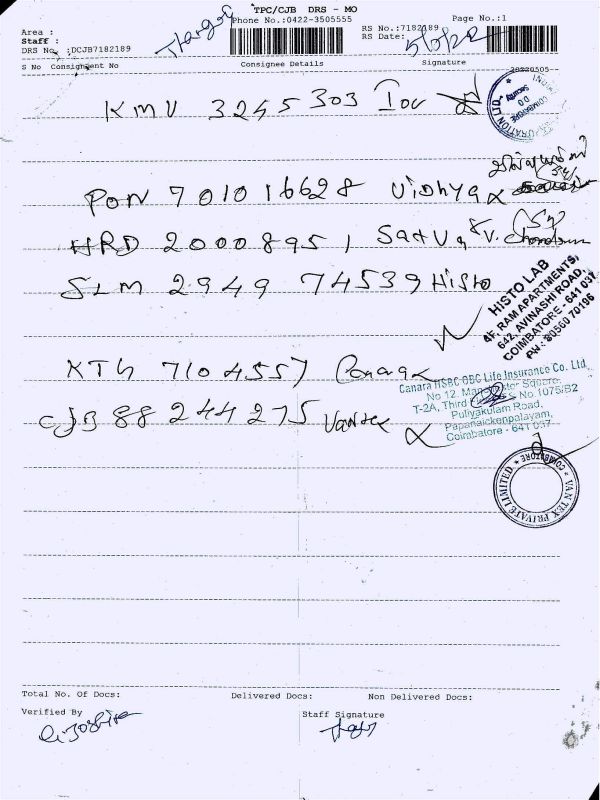 TPC/CJB DRS - MO
Area :
Phone No.:0422-3505555
Page No.:1
Staff :
RS No.:7182189
DRS No. :DCJB7182189
RS Date: 5/5/22
S No Consignment No Consignee Details Signature
20220505
KMU 3245303 IOC
PON 701016628 Vidhya
HRD 20008951 Satva V. Chandran
SLM 294974539 Histo
HISTO LAB
4F, RAM APARTMENTS,
642, AVINASHI ROAD,
COIMBATORE - 641 037
PH : 80560 70196
KTG 7104557 Canara
Canara HSBC OBC Life Insurance Co. Ltd.
No 12, Manchester Square,
T-2A, Third No. 1075/B2
Puliyakulam Road,
Papanaickenpalayam,
Coimbatore - 641 037
CJB 88244275 Vantex
VAN TEX PRIVATE LIMITED * COIMBATORE *
Total No. Of Docs: Delivered Docs: Non Delivered Docs:
Verified By Staff Signature